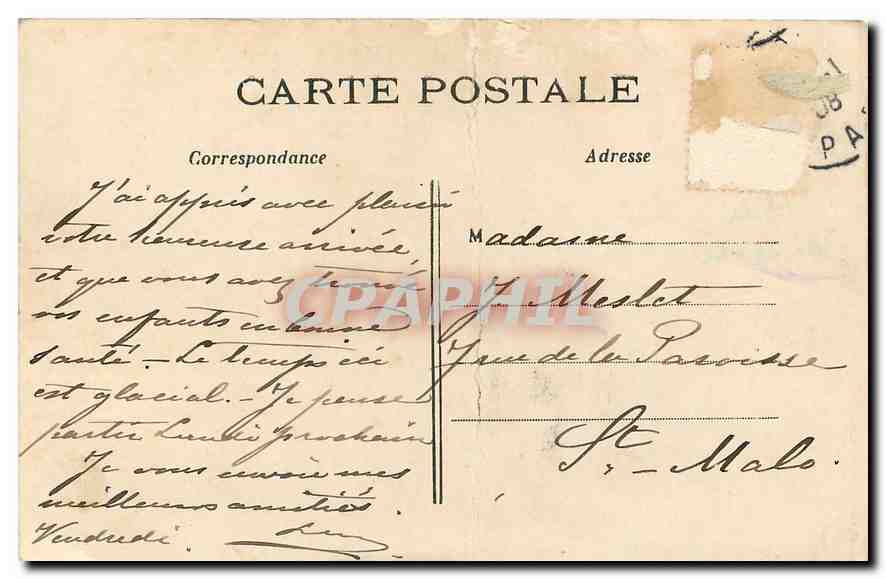 CARTE POSTALE
Correspondance
Adresse
J'ai appris avec plaisir
votre heureuse arrivée,
et que vous avez trouvé
vos enfants en bonne
santé. - Le temps ici
est glacial. - Je pense
partir Lundi prochain
Je vous envoie mes
meilleures amitiés.
Vendredi.
Madame
J. Meslet
7 rue de la Paroisse
St - Malo.
08
PA
CPAPHIL